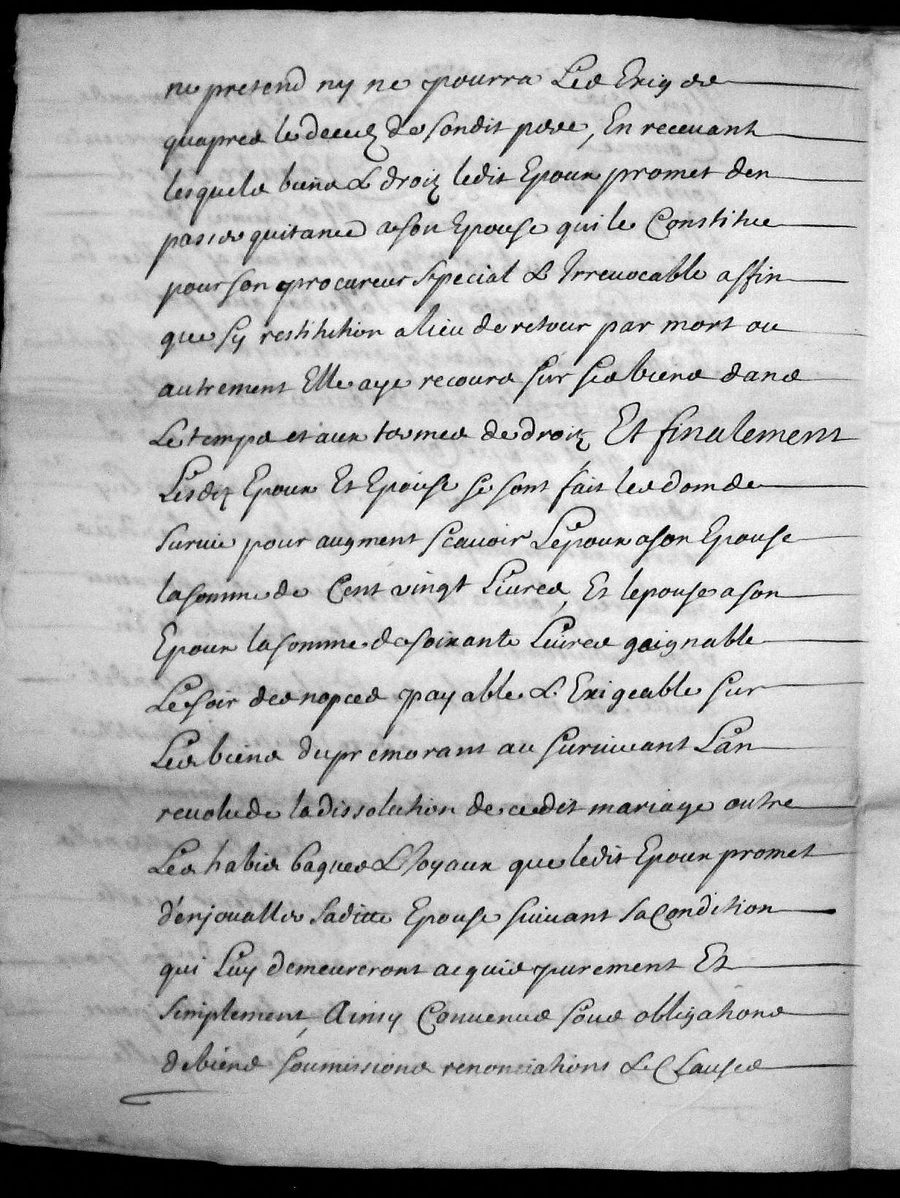 ne pretend ny ne pourra Les Exiger
quapres le decedz de sondit pere, En recevant
lesquels biens & droitz ledit Epoux promet den
passer quitance a son Epouse qui le Constitue
pour son procureur special & Irrevocable affin
que sy restitution a lieu de retour par mort ou
autrement Elle aye recours sur ses biens dans
Le temps et aux termes de droitz Et finalement
Lesdz Epoux Et Epouse se sont fait les dom de
survie pour augment scavoir L'epoux a son Epouse
la somme de Cent vingt Livres, Et lepouse a son
Epoux la somme de soixante Livres gaignable
Le soir des nopces payable & Exigeable sur
Les biens du premorant au survivant L'an
revolu de la dissolution de cedit mariage outre
Les habis bagues & Joyaux que ledit Epoux promet
d'enjoualler saditte Epouse suivant sa Condition
qui Luy demeureront acquis purement Et
simplement, Ainsy Convenus sous obligations
de biens soumissions renonciations & Clauses